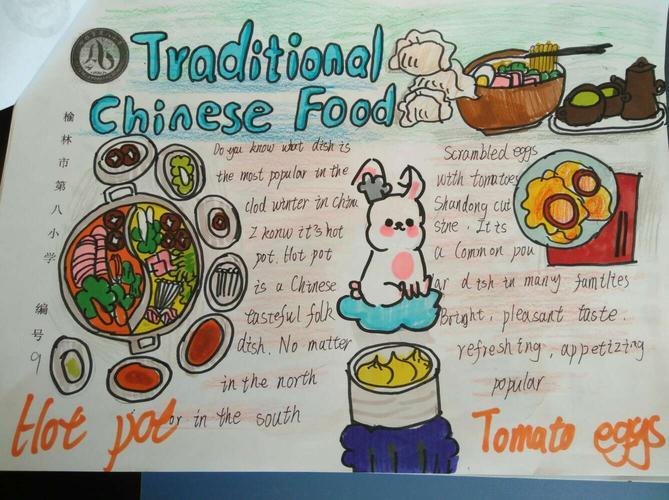 Traditional
Chinese Food
榆林市第八小学 编号9
Do you know what dish is
the most popular in the
clod winter in china
I konw it's hot
pot. Hot pot
is a Chinese
tasteful folk
dish. No matter
in the north
or in the south
Scrambled eggs
with tomatoes
Shandong cui
sine. It is
a Common pou
lar dish in many families
Bright, pleasant taste.
refreshing, appetizing
popular
Hot pot
Tomato eggs